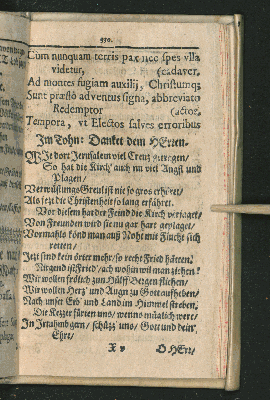 330.
Cum nunquam terris pax nec spes vlla
videtur, (cadaver,
Ad montes fugiam auxilij, Christumq;
Sunt præstò adventus signa, abbreviato
Redemptor (actos,
Tempora, vt Electos salves erroribus
Im Tohn: Dancket dem HErren.
WIe dort Jerusalem viel Creuz getragen/
So hat die Kirch auch nu viel Angst und
Plagen/
Verwüstungs Greul ist nie so gros erhöret/
Als jetzt die Christenheit so lang erfähret.
Vor diesem hat der Feind die Kirch verjaget/
Von Freunden wird sie nu gar hart geplaget/
Vormahls könd man auß Noht mit Flucht sich
retten/
Jetzt sind kein örter mehr/ so recht Fried hätten.
Nirgend ist Fried/ ach wohin wil man ziehen?
Wir wollen frölich zun Hülff Bergen fliehen/
Wir wollen Hertz und Augn zu Gott aufheben/
Nach unser Erb und Land im Himmel streben,
Die Ketzer fürten uns/ wenns müglich were/
In schütz uns/ Gott und dein
Ehre/
X v O HErr/